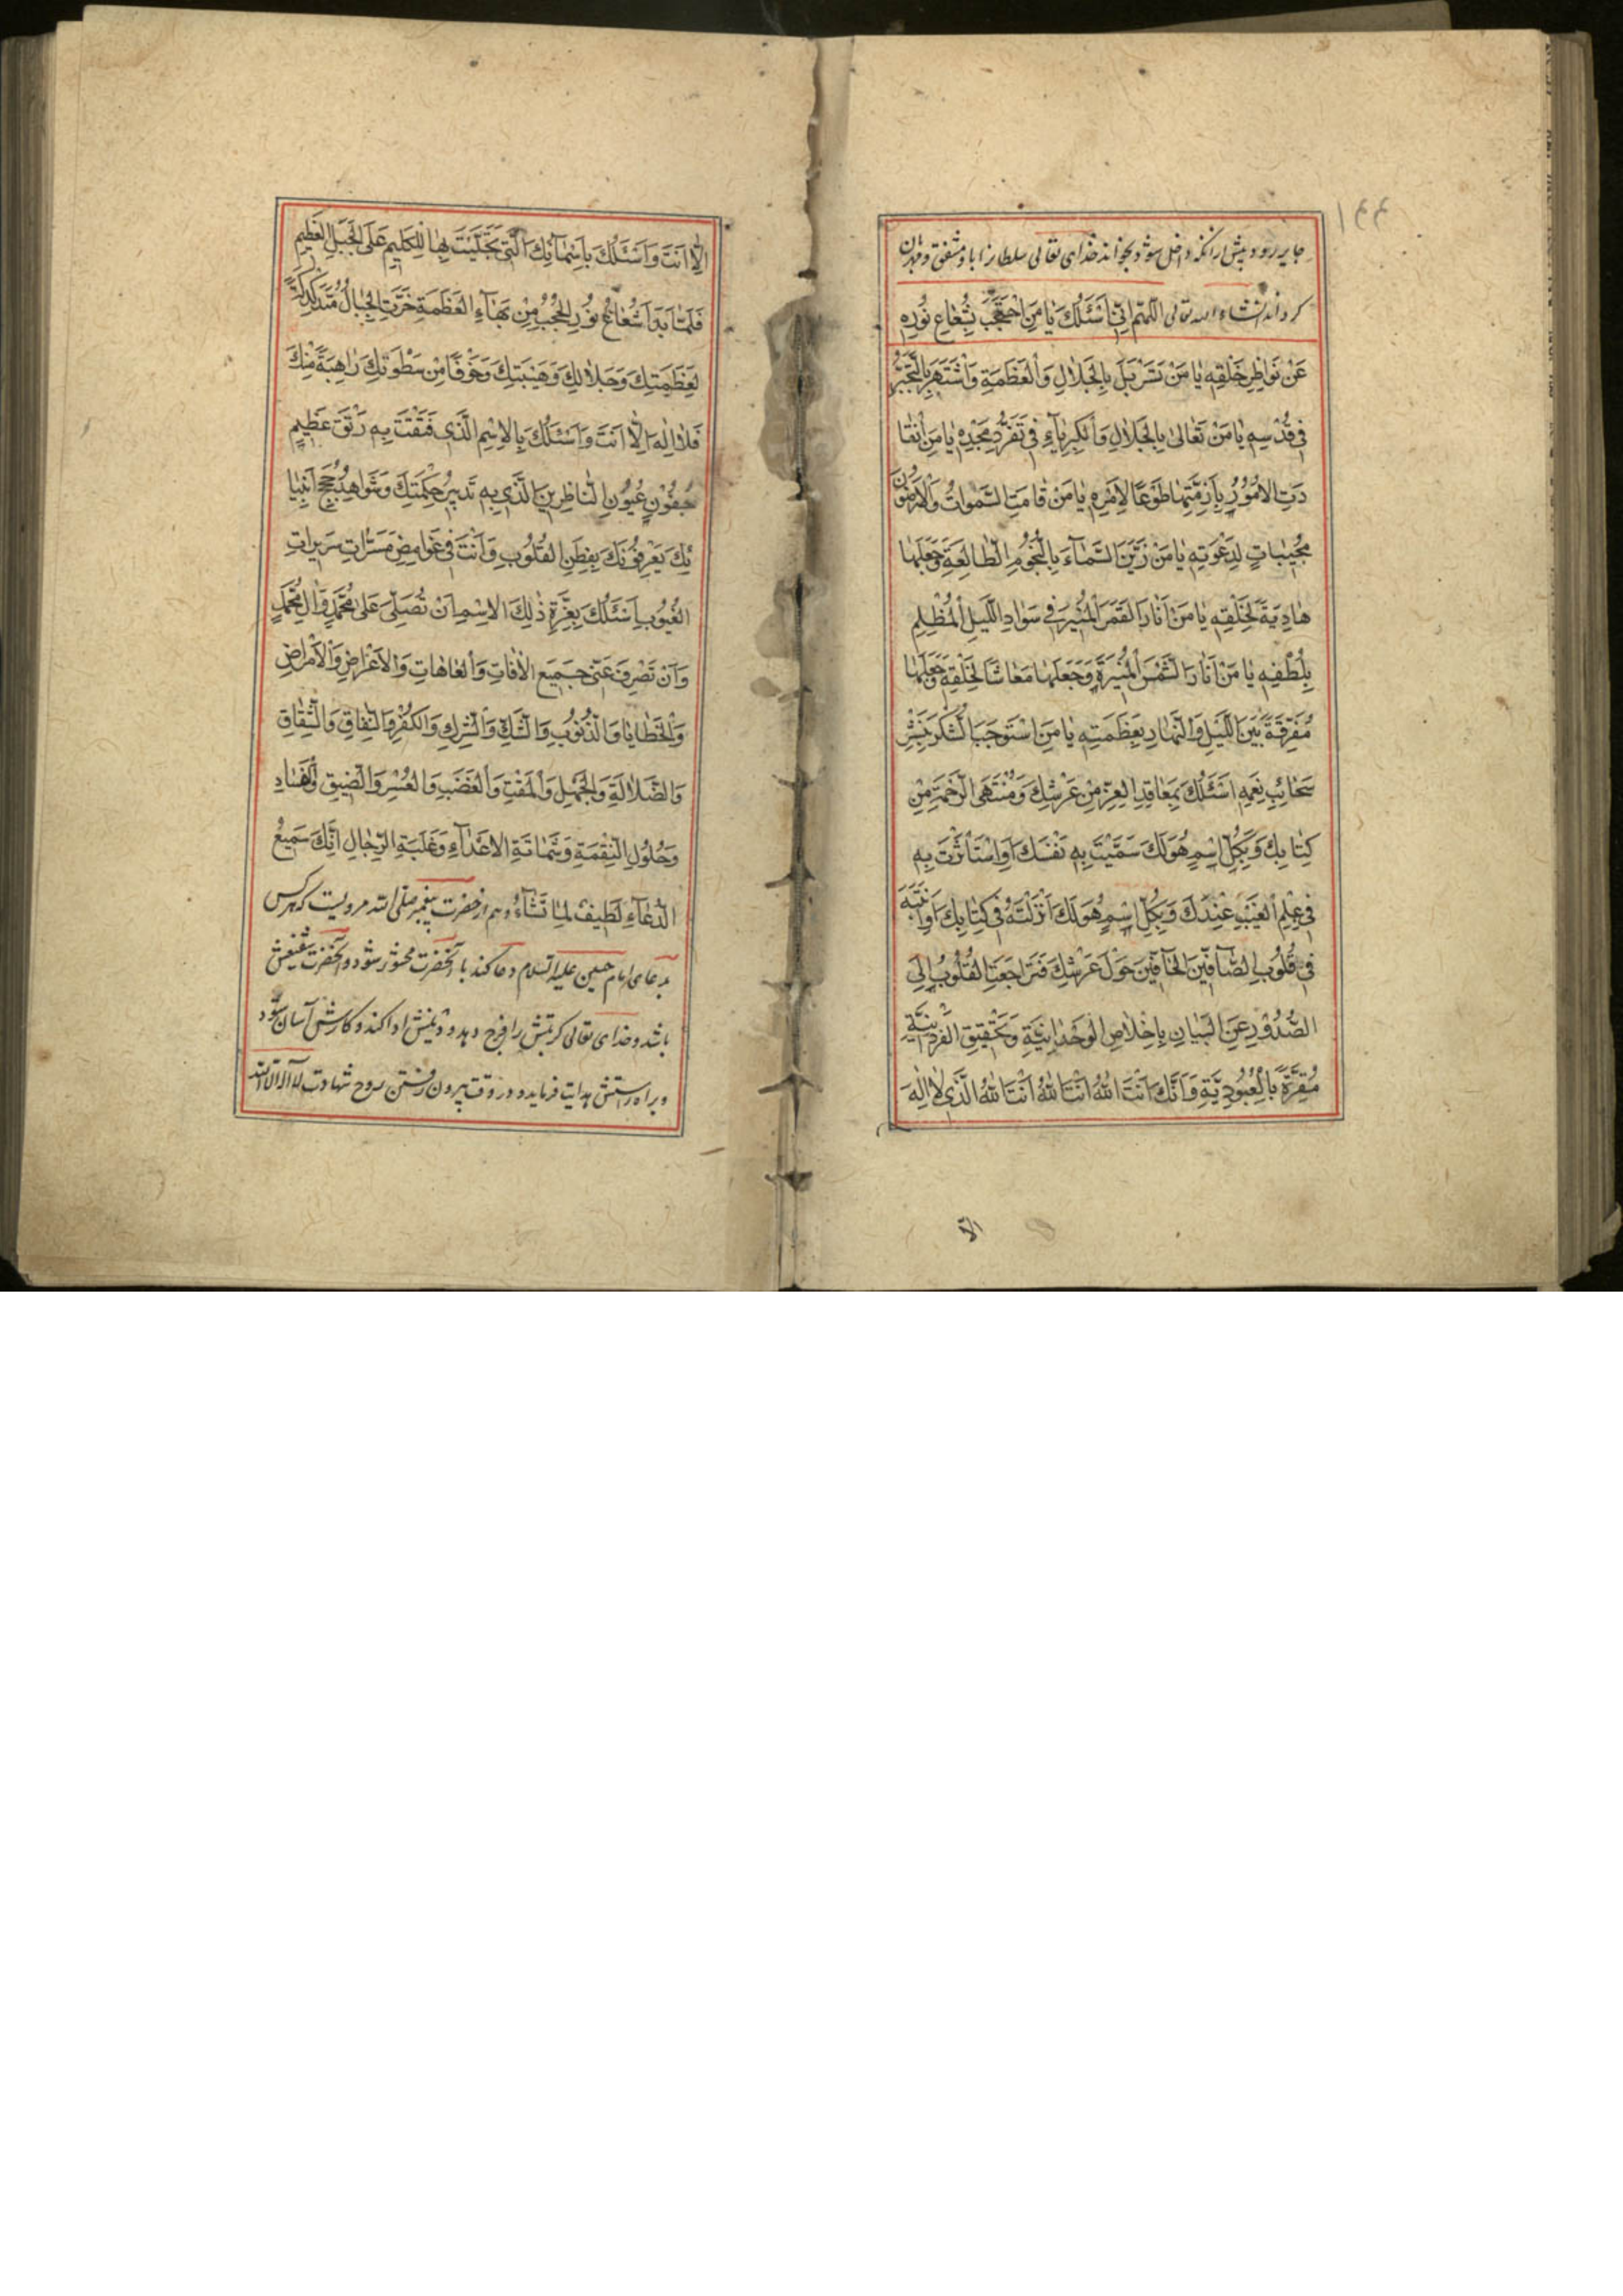 ۱۴۴
جابر رود پیش از انکه داخل شود بخواند خدای تعالی سلطان را با و مشفق و مهربان
کرداند انشاء الله تعالی اللّهُمَّ اِنّى اَسْئَلُكَ يا مَنِ احْتَجَبَ بِشُعاعِ نُورِهِ
عَنْ نَواظِرِ خَلْقِهِ يا مَنْ تَسَرْبَلَ بِالْجَلالِ وَالْعَظَمَةِ وَاشْتَهَرَ بِالتَّجَبُّرِ
فى قُدْسِهِ يا مَنْ تَعالى بِالْجَلالِ وَالْكِبْرِياءِ فى تَفَرُّدِ مَجْدِهِ يا مَنِ انْقا
دَتِ الاُمُورُ بِاَزِمَّتِها طَوْعًا لِاَمْرِهِ يا مَنْ قامَتِ السَّمواتُ وَالاَرَضُونَ
مُجيباتٍ لِدَعْوَتِهِ يا مَنْ زَيَّنَ السَّمآءَ بِالنُّجُومِ الطّالِعَةِ وَجَعَلَها
هادِيَةً لِخَلْقِهِ يا مَنْ اَنارَ القَمَرَ الْمُنيرَ فى سَوادِ اللَّيْلِ الْمُظْلِمِ
بِلُطْفِهِ يا مَنْ اَنارَ الشَّمْسَ الْمُنيرَةَ وَجَعَلَها مَعاشًا لِخَلْقِهِ وَجَعَلَها
مُفَرِّقَةً بَيْنَ اللَّيْلِ وَالنَّهارِ بِعَظَمَتِهِ يا مَنِ اسْتَوْجَبَ الشُّكْرَ بِنَشْرِ
سَحائِبِ نِعَمِهِ اَسْئَلُكَ بِمَعاقِدِ العِزِّ مِنْ عَرْشِكَ وَمُنْتَهَى الرَّحْمَةِ مِنْ
كِتابِكَ وَبِكُلِّ اسْمٍ هُوَ لَكَ سَمَّيْتَ بِهِ نَفْسَكَ اَوِ اسْتَأْثَرْتَ بِهِ
فى عِلْمِ الْغَيْبِ عِنْدَكَ وَبِكُلِّ اسْمٍ هُوَ لَكَ اَنْزَلْتَهُ فى كِتابِكَ اَوْ اَثْبَتَّهُ
فى قُلُوبِ الصّآفّينَ الْحآفّينَ حَوْلَ عَرْشِكَ فَتَراجَعَتِ القُلُوبُ اِلَى
الصُّدُورِ عَنِ البَيانِ بِاِخْلاصِ الْوَحْدانِيَّةِ وَتَحْقيقِ الْفَرْدانِيَّةِ
مُقِرَّةً بِالْعُبُودِيَّةِ وَاَنَّكَ اَنْتَ اللهُ اَنْتَ اللهُ اَنْتَ اللهُ الَّذى لا اِلهَ
الا
اِلّا اَنْتَ وَاَسْئَلُكَ بِاَسْمآئِكَ الَّتى تَجَلَّيْتَ بِها لِلْكَليمِ عَلَى الْجَبَلِ العَظيمِ
فَلَمّا بَدا شُعاعُ نُورِ الْحُجُبِ مِنْ بَهآءِ الْعَظَمَةِ خَرَّتِ الْجِبالُ مُتَدَكْدِكَةً
لِعَظَمَتِكَ وَجَلالِكَ وَهَيْبَتِكَ وَخَوْفًا مِنْ سَطْوَتِكَ راهِبَةً مِنْكَ
فَلا اِلهَ اِلّا اَنْتَ وَاَسْئَلُكَ بِالاِسْمِ الَّذى فَتَقْتَ بِهِ رَتْقَ عَظيمِ
جُفُونِ عُيُونِ النّاظِرينَ الَّذى بِهِ تَدْبيرُ حِكْمَتِكَ وَشَواهِدُ حُجَجِ اَنْبِيا
ئِكَ يَعْرِفُونَكَ بِفِطَنِ القُلُوبِ وَاَنْتَ فى غَوامِضِ مَسَرّاتِ سَريراتِ
الغُيُوبِ اَسْئَلُكَ بِعِزَّةِ ذلِكَ الاِسْمِ اَنْ تُصَلِّىَ عَلى مُحَمَّدٍ وَآلِ مُحَمَّدٍ
وَاَنْ تَصْرِفَ عَنّى جَميعَ الافاتِ وَالْعاهاتِ وَالاَعْراضِ وَالاَمْراضِ
وَالْخَطايا وَالذُّنُوبِ وَالشَّكِّ وَالشِّرْكِ وَالكُفْرِ وَالنِّفاقِ وَالشِّقاقِ
وَالضَّلالَةِ وَالْجَهْلِ وَالْمَقْتِ وَالْغَضَبِ وَالعُسْرِ وَالضّيقِ وَالْفَسادِ
وَحُلُولِ النِّقْمَةِ وَشَماتَةِ الاَعْدآءِ وَغَلَبَةِ الرِّجالِ اِنَّكَ سَميعُ
الدُّعآءِ لَطيفٌ لِما تَشآءُ و هم از حضرت پیغمبر صلی الله مرویست که هر کس
بدعای امام حسین علیه السلام دعا کند با آنحضرت محشور شود و آنحضرت شفیعش
باشد و خدای تعالی کربتش را فرج دهد و دینش ادا کند و کارش آسان شود
و براه راستش هدایت فرماید و در وقت بیرون رفتن روح شهادت لا اله الا الله